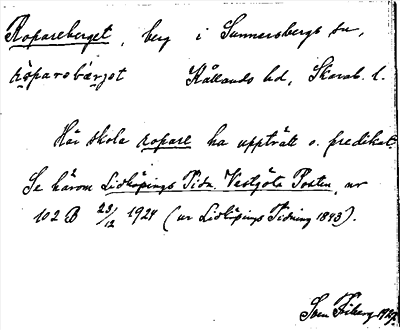 Ropareberget, berg i Sunnersbergs sn,
ròparebæ̀rjet Kållands hd, Skarab. l.
Här skola ropare ha uppträtt o. predikat.
Se härom Lidköpings Tidn. Vestgöta Posten, nr
102 B 23/12 1924 (ur Lidköpings Tidning 1843).
Sven Friberg 1927.